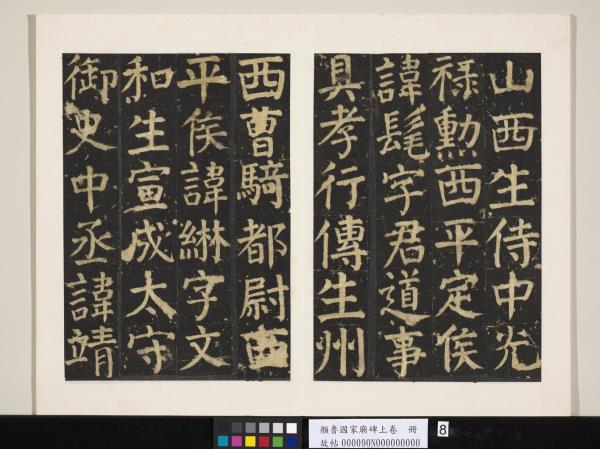 山西生侍中光
祿勲西平定侯
諱髦字君道事
具孝行傳生州
西曹騎都尉西
平侯諱綝字文
和生宣成太守
御史中丞諱靖
顏魯國家廟碑上卷 冊
故帖 000090N000000000
8